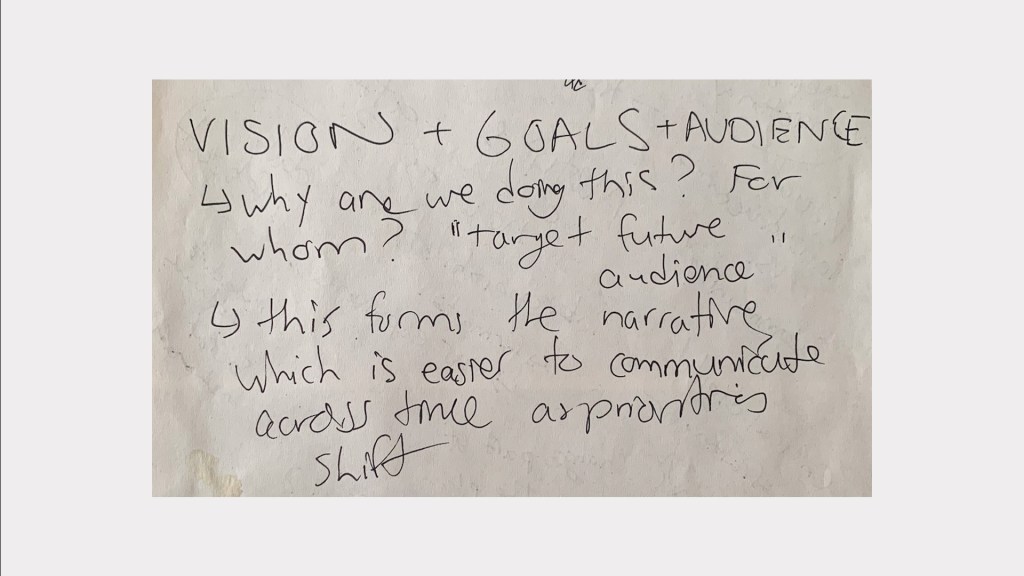 VISION + GOALS + AUDIENCE
↳ why are we doing this? For
whom? "target future "
audience
↳ this forms the narrative
which is easier to communicate
across time as priorities
shift